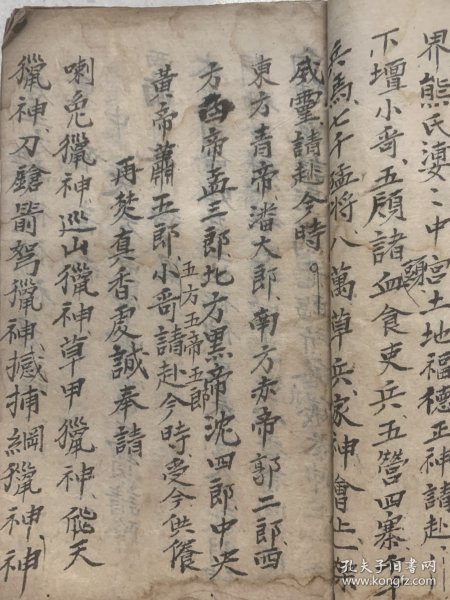 界熊氏婆〻中宮土地福德正神請赴
下壇小哥、五顧諸頭血食吏兵五營四寨
兵馬七千猛將、八萬草兵、家神會上一
威靈、請赴今時。
東方青帝潘大郎、南方赤帝郭二郎、西
方白帝孟三郎、北方黑帝沈四郎、中央
黃帝蕭五郎、小哥請赴今時、受今供養
五方五帝五郎
再焚真香、虔誠奉請
喇兔獵神、巡山獵神、草甲獵神、天
獵神、刀鎗箭弩獵神、捕網獵神、神
孔夫子旧书网
www.kongfz.com